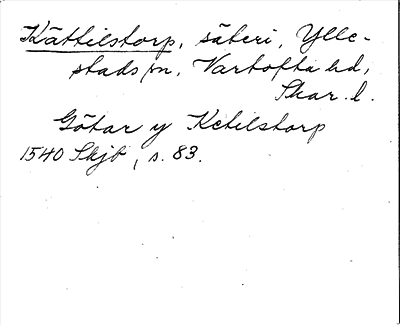 Kättilstorp, säteri, Ylle-
stads sn, Vartofta hd,
Skar. l.
Götar y Ketilstorp
1540 Skjb, s. 83.